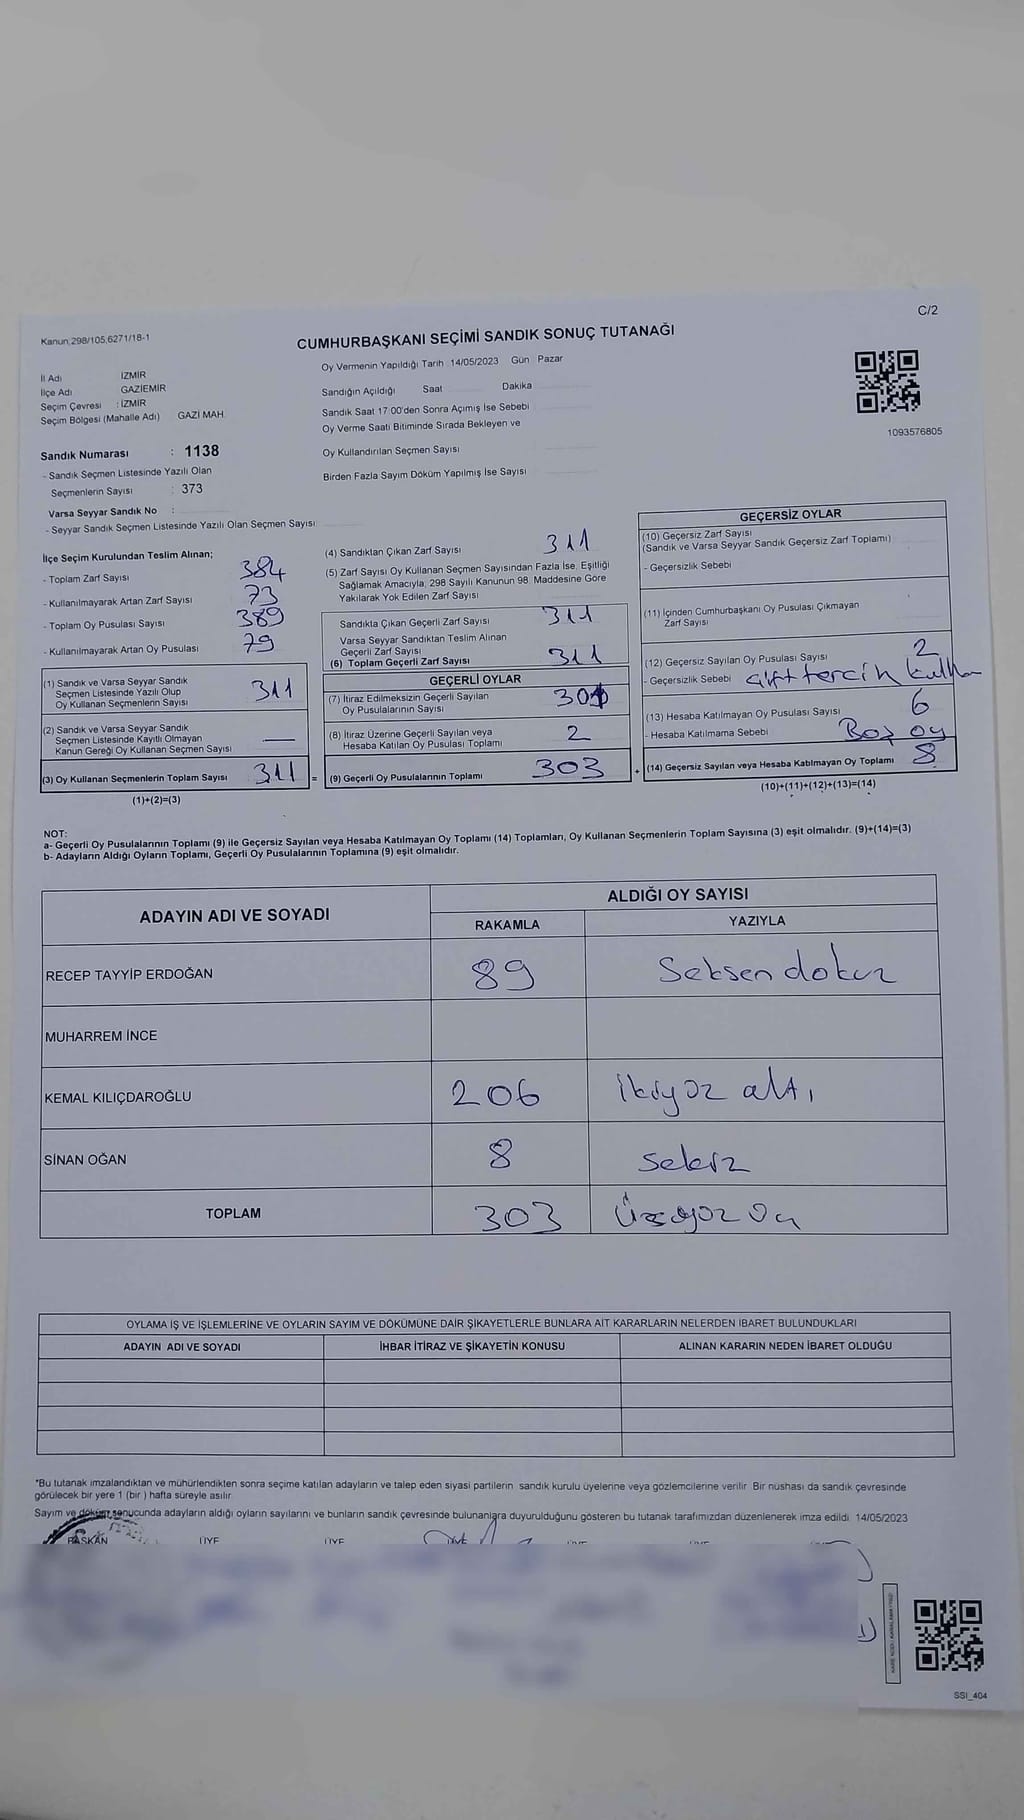 C/2
Kanun 298/105,6271/18-1
CUMHURBAŞKANI SEÇİMİ SANDIK SONUÇ TUTANAĞI
Oy Vermenin Yapıldığı Tarih 14/05/2023 Gün Pazar
İl Adı İZMİR
İlçe Adı GAZİEMİR
Seçim Çevresi : İZMİR
Seçim Bölgesi (Mahalle Adı) GAZİ MAH.
Sandığın Açıldığı Saat Dakika
Sandık Saat 17:00'den Sonra Açımış İse Sebebi
Oy Verme Saati Bitiminde Sırada Bekleyen ve
Oy Kullandırılan Seçmen Sayısı
Birden Fazla Sayım Döküm Yapılmış İse Sayısı
1093576805
Sandık Numarası : 1138
- Sandık Seçmen Listesinde Yazılı Olan
Seçmenlerin Sayısı : 373
Varsa Seyyar Sandık No :
- Seyyar Sandık Seçmen Listesinde Yazılı Olan Seçmen Sayısı:
İlçe Seçim Kurulundan Teslim Alınan;
- Toplam Zarf Sayısı 384
- Kullanılmayarak Artan Zarf Sayısı 73
- Toplam Oy Pusulası Sayısı 389
- Kullanılmayarak Artan Oy Pusulası 79
(1) Sandık ve Varsa Seyyar Sandık
Seçmen Listesinde Yazılı Olup
Oy Kullanan Seçmenlerin Sayısı 311
(2) Sandık ve Varsa Seyyar Sandık
Seçmen Listesinde Kayıtlı Olmayan
Kanun Gereği Oy Kullanan Seçmen Sayısı —
(3) Oy Kullanan Seçmenlerin Toplam Sayısı 311 =
(1)+(2)=(3)
(4) Sandıktan Çıkan Zarf Sayısı 311
(5) Zarf Sayısı Oy Kullanan Seçmen Sayısından Fazla İse, Eşitliği
Sağlamak Amacıyla, 298 Sayılı Kanunun 98. Maddesine Göre
Yakılarak Yok Edilen Zarf Sayısı
Sandıkta Çıkan Geçerli Zarf Sayısı 311
Varsa Seyyar Sandıktan Teslim Alınan
Geçerli Zarf Sayısı
(6) Toplam Geçerli Zarf Sayısı 311
GEÇERLİ OYLAR
(7) İtiraz Edilmeksizin Geçerli Sayılan
Oy Pusulalarının Sayısı 301
(8) İtiraz Üzerine Geçerli Sayılan veya
Hesaba Katılan Oy Pusulası Toplamı 2
(9) Geçerli Oy Pusulalarının Toplamı 303 +
GEÇERSİZ OYLAR
(10) Geçersiz Zarf Sayısı
(Sandık ve Varsa Seyyar Sandık Geçersiz Zarf Toplamı)
- Geçersizlik Sebebi
(11) İçinden Cumhurbaşkanı Oy Pusulası Çıkmayan
Zarf Sayısı
(12) Geçersiz Sayılan Oy Pusulası Sayısı 2
- Geçersizlik Sebebi çift tercih
(13) Hesaba Katılmayan Oy Pusulası Sayısı 6
- Hesaba Katılmama Sebebi Boş oy
(14) Geçersiz Sayılan veya Hesaba Katılmayan Oy Toplamı 8
(10)+(11)+(12)+(13)=(14)
NOT:
a- Geçerli Oy Pusulalarının Toplamı (9) ile Geçersiz Sayılan veya Hesaba Katılmayan Oy Toplamı (14) Toplamları, Oy Kullanan Seçmenlerin Toplam Sayısına (3) eşit olmalıdır. (9)+(14)=(3)
b- Adayların Aldığı Oyların Toplamı, Geçerli Oy Pusulalarının Toplamına (9) eşit olmalıdır.
ADAYIN ADI VE SOYADI ALDIĞI OY SAYISI
RAKAMLA YAZIYLA
RECEP TAYYİP ERDOĞAN 89 Seksen dokuz
MUHARREM İNCE
KEMAL KILIÇDAROĞLU 206 İkiyüz altı
SİNAN OĞAN 8 sekiz
TOPLAM 303
OYLAMA İŞ VE İŞLEMLERİNE VE OYLARIN SAYIM VE DÖKÜMÜNE DAİR ŞİKAYETLERLE BUNLARA AİT KARARLARIN NELERDEN İBARET BULUNDUKLARI
ADAYIN ADI VE SOYADI İHBAR İTİRAZ VE ŞİKAYETİN KONUSU ALINAN KARARIN NEDEN İBARET OLDUĞU
*Bu tutanak imzalandıktan ve mühürlendikten sonra seçime katılan adayların ve talep eden siyasi partilerin sandık kurulu üyelerine veya gözlemcilerine verilir. Bir nüshası da sandık çevresinde
görülecek bir yere 1 (bir) hafta süreyle asılır.
Sayım ve döküm sonucunda adayların aldığı oyların sayılarını ve bunların sandık çevresinde bulunanlara duyurulduğunu gösteren bu tutanak tarafımızdan düzenlenerek imza edildi. 14/05/2023
BAŞKAN ÜYE ÜYE ÜYE
SSI_404